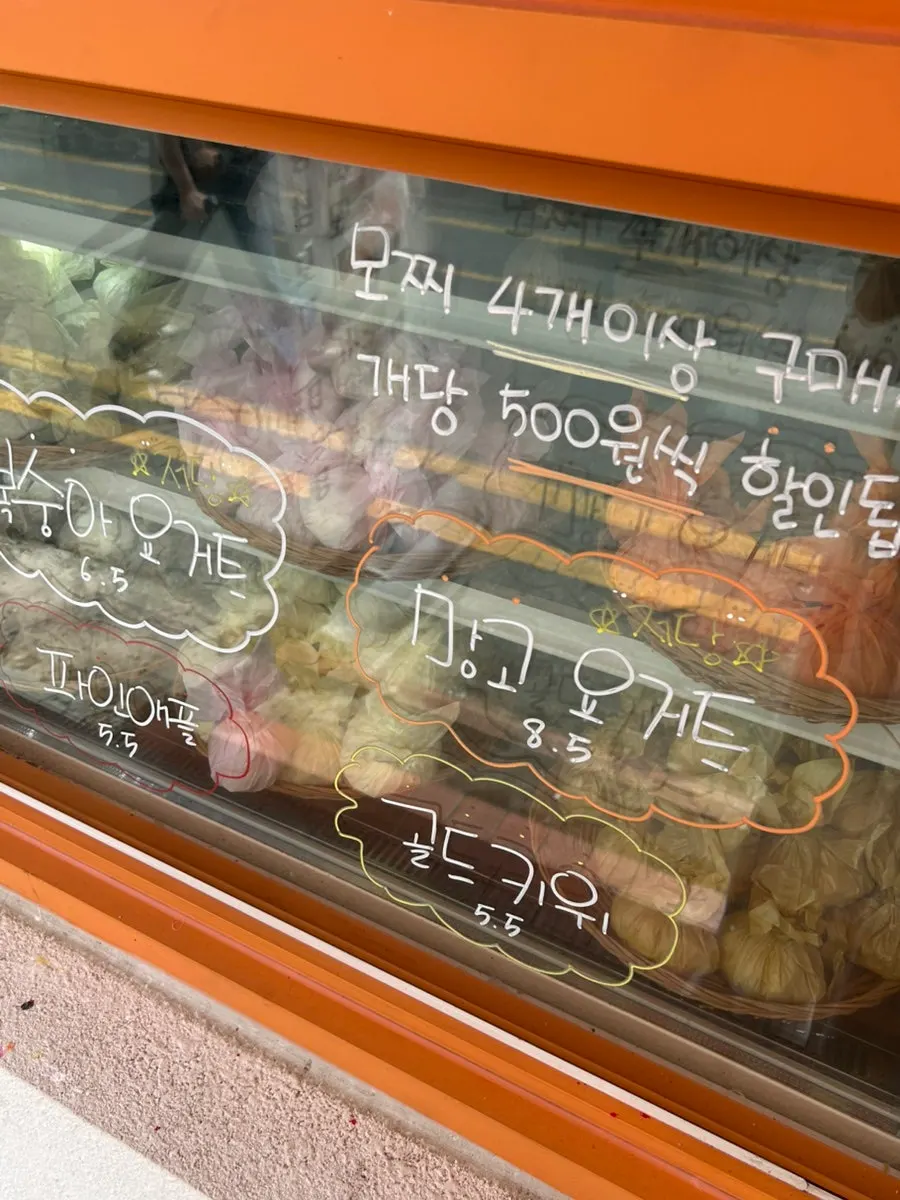 모찌 4개이상 구매
개당 500원씩 할인됩
☆저당☆
복숭아 요거트
6.5
☆저당☆
망고 요거트
8.5
파인애플
5.5
골드키위
5.5